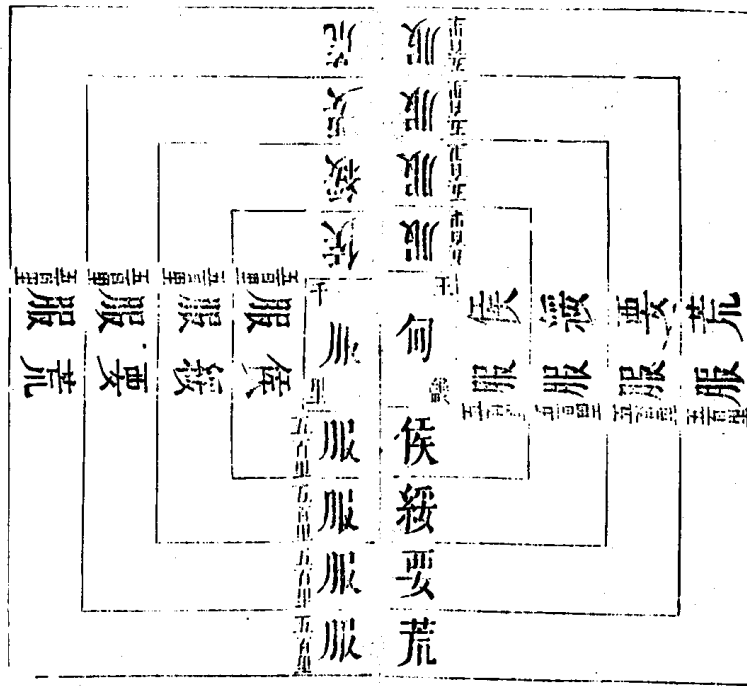 荒服五百里
要服五百里
綏服五百里
侯服五百里
荒服五百里
要服五百里
綏服五百里
侯服五百里
王畿
甸服
千里
侯服五百里
綏服五百里
要服五百里
荒服五百里
侯服五百里
綏服五百里
要服五百里
荒服五百里